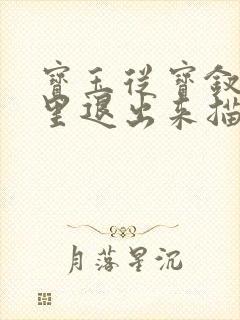 寶玉從寶釵
里退出來描
月落星沉